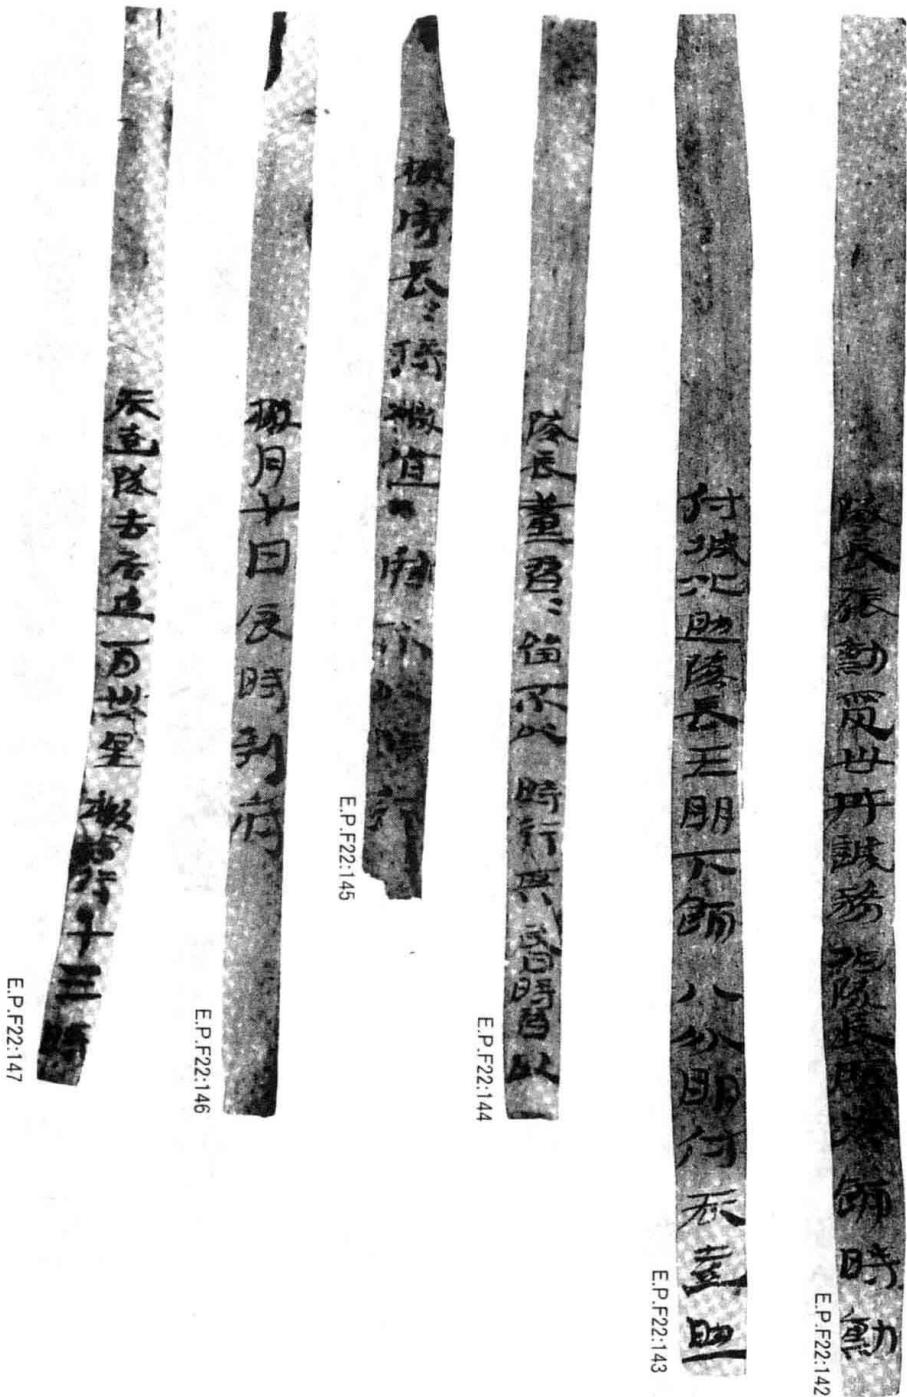 隧長張勳受卅井誠勢北隧長房岑餔時勳
E.P.F22:142
付城北助隧長王明下餔八分明付吞遠助
E.P.F22:143
隧長董習〻留不以時行其昏時習以
E.P.F22:144
檄寄長〻持檄道宿不以時行
E.P.F22:145
檄月廿日辰時到府
E.P.F22:146
吞遠隧去居延百卅里檄當行十三時
E.P.F22:147